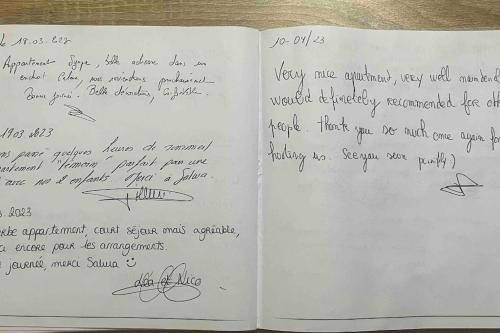 le 18.03.2023
Appartement Sympa, belle adresse dans un
endroit Calme, nous reviendrons prochainement
Bonne journée. Belle décoration,
19 03 2023
passé quelques heures de sommeil
parfait pour une
avec nos 2 enfants Merci à Salwa.
2023
appartement, court séjour mais agréable,
encore pour les arrangements.
journée, merci Salwa
Léa et Nico
10-04/23
Very nice apartment, very well
would definetely recommended for
people. Thank you so much once again for
hosting us. See you soon